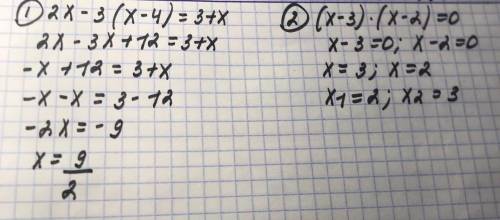 ① 2x - 3(x-4) = 3+x
2x - 3x + 12 = 3+x
-x + 12 = 3+x
-x - x = 3 - 12
-2x = -9
x = 9/2
② (x-3)·(x-2)=0
x-3=0; x-2=0
x=3; x=2
x1=2; x2=3